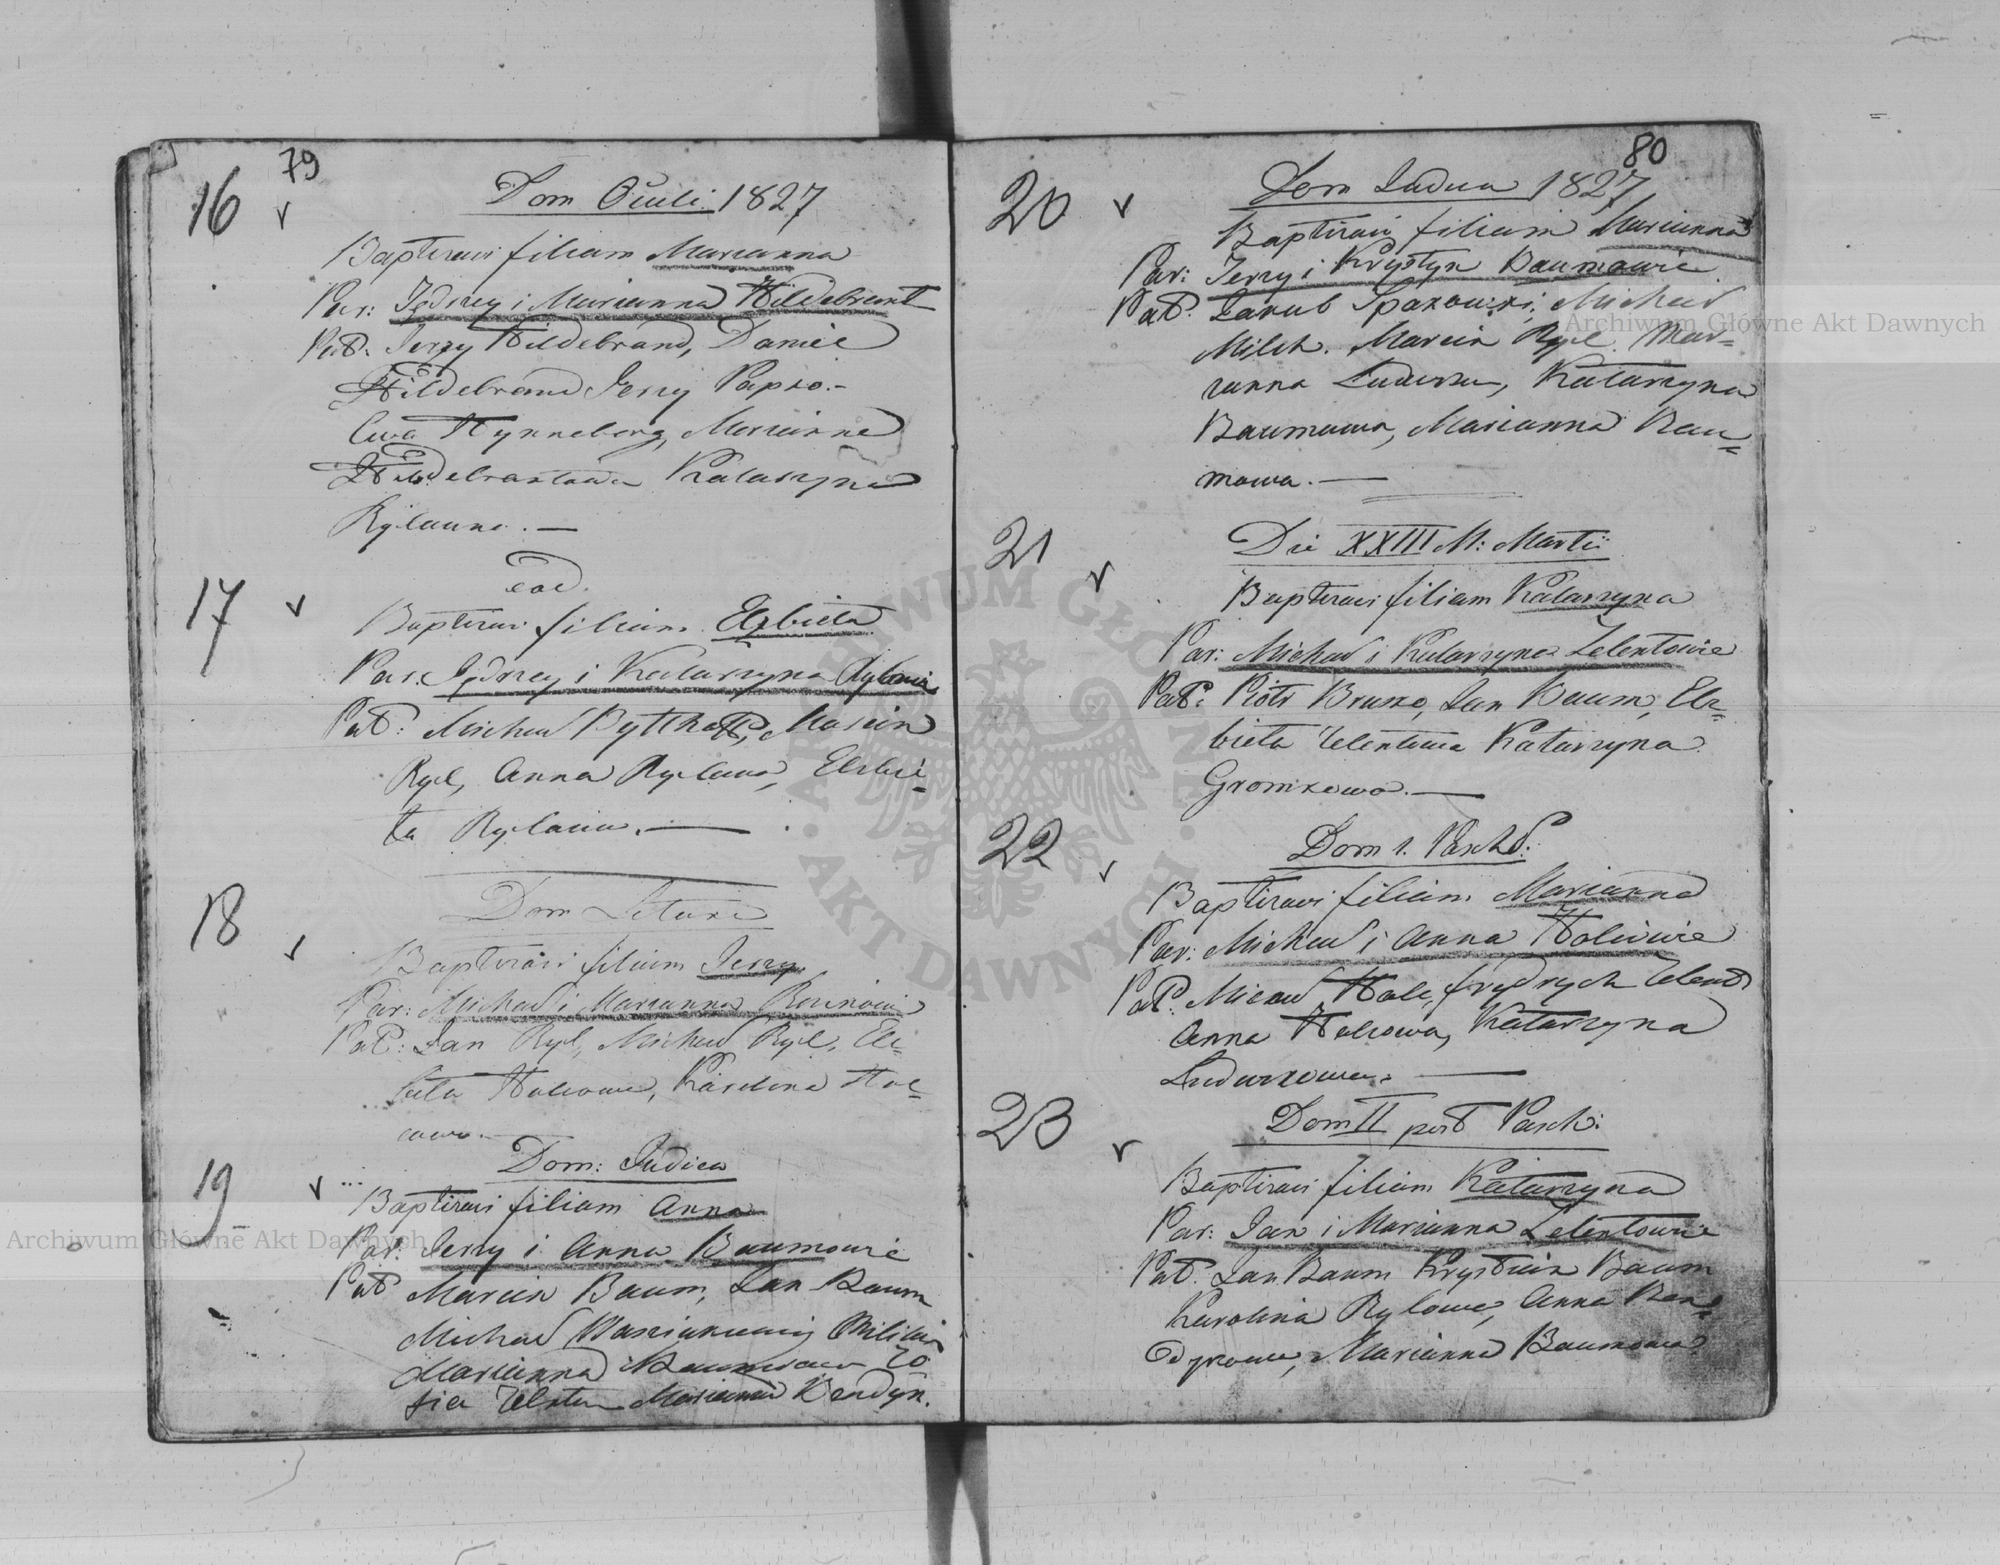 79
16
Dom Oculi 1827
Baptizavi filiam Marianna
Par: Jędrzey i Marianna Hildebrant
Pat: Jerzy Hildebrand, Daniel
Hildebrand Jerzy Papro.-
Ewa Hynneberg, Marianna
Hildebrantowa Katarzyna
Rylauna. —
17
eod.
Baptizavi filiam Elzbieta
Par: Jędrzey i Katarzyna Rylowie
Pat: Michał Marcin
Ryl, Anna Rylowa, Elzbie=
ta Rylowa. —
18
Dom Letare
Baptizavi filium Jerzy
Par: Michał i Marianna
Pat: Jan Ryl, Michał Ryl, Elz=
bieta Holcowa, Karolina Hol=
cowa.
19
Dom: Judica
Baptizavi filiam Anna
Par: Jerzy i Anna Baumowie
Pat Marcin Baum, Jan Baum
Michał
Marianna Baumowa Zo
fia Marianna Bendyk.
80
20
Dom Judica 1827
Baptizavi filiam Marianna
Par: Jerzy i Krystyn Baumowie
Pat: Jakub Michał
Milch. Marcin Ryl. Mar=
ianna Katarzyna
Baumowa, Marianna Bau=
mowa. —
21
Die XXIII M: Martii
Baptizavi filiam Katarzyna
Par: Michał i Katarzyna Zelentowie
Pat: Piotr Jan Baum, Elz=
bieta Zelentowa Katarzyna
Gromkowa. —
22
Dom 1. Pasch:
Baptizavi filiam Marianna
Par: Michał i Anna Holcowie
Pat: Michał Holc, frydrych Zelent
Anna Holcowa, Katarzyna
—
23
Dom II post Pasch:
Baptizavi filiam Katarzyna
Par: Jan i Marianna Zelentowie
Pat: Jan Baum Krystian Baum
Karolina Rylowa, Anna Ben=
dykowa, Marianna Baumowa
Archiwum Główne Akt Dawnych
Archiwum Główne Akt Dawnych
ARCHIWUM GŁÓWNE
AKT DAWNYCH